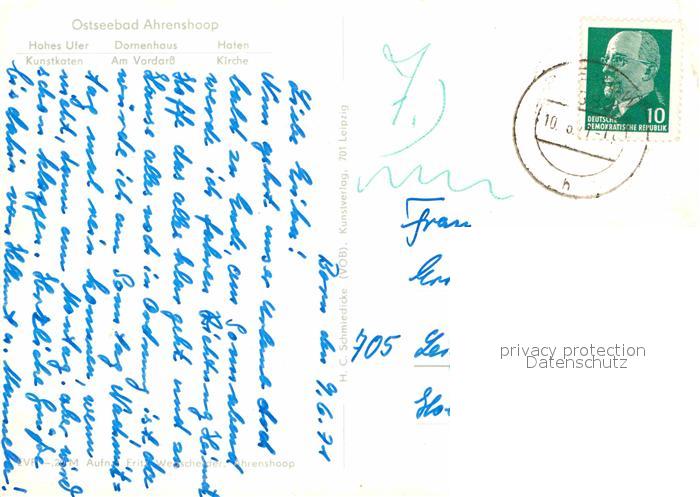 Ostseebad Ahrenshoop
Hohes Ufer Dornenhaus Hafen
Kunstkaten Am Vordarß Kirche
Born den 9.6.71
Liebe Erika!
Nun geht unser Urlaub doch
bald zu Ende, am Sonnabend
werde ich fahren Richtung Heimat
Hoffe das alles klar geht und zu
Hause alles noch in Ordnung ist da
würde ich am Sonntag Nachmit=
tag mal rein kommen, wenn
nicht, dann am Montag. aber wird
schon klappen. Herzliche Grüße
bis dahin von Hellmut u. Manuela!
H. C. Schmiedicke (VOB), Kunstverlag, 701 Leipzig
7.
Frau
705
DEUTSCHE
DEMOKRATISCHE REPUBLIK
10
h
privacy protection
Datenschutz
Ahrenshoop